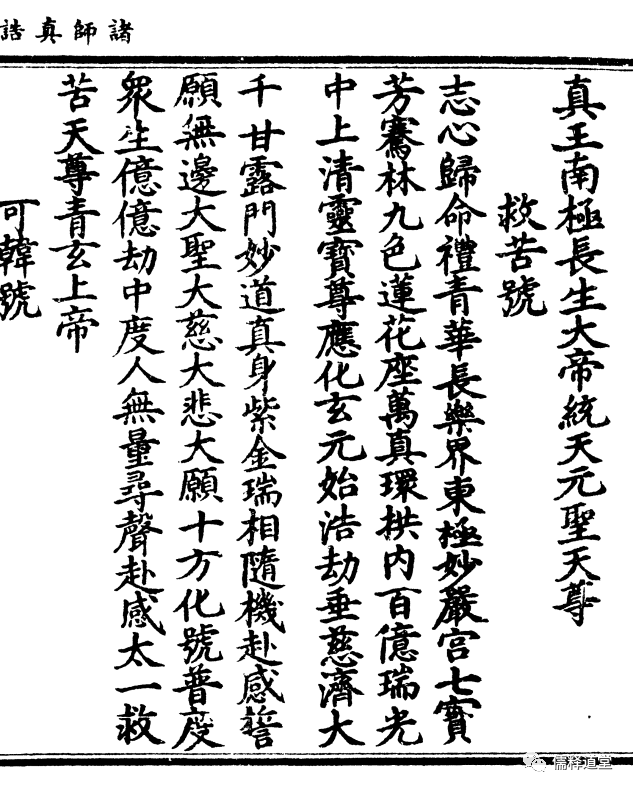 諸師真誥
真王南極長生大帝統天元聖天尊
救苦號
志心歸命禮青華長樂界東極妙嚴宮七寶
芳騫林九色蓮花座萬真環拱內百億瑞光
中上清靈寶尊應化玄元始浩劫垂慈濟大
千甘露門妙道真身紫金瑞相隨機赴感誓
願無邊大聖大慈大悲大願十方化號普度
眾生億億劫中度人無量尋聲赴感太一救
苦天尊青玄上帝
可韓號
儒释道堂